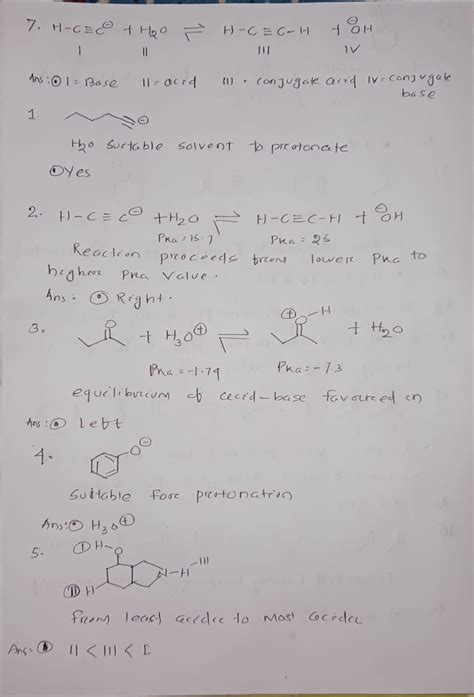 7. H-C≡C⊖ + H₂O ⇌ H-C≡C-H + ⊖OH
I II III IV
Ans: ⊙ I = Base II = acid III = conjugate acid IV = conjugate
base
1. ⊖
H₂O suitable solvent to protonate
⊙Yes
2. H-C≡C⊖ + H₂O ⇌ H-C≡C-H + ⊖OH
Pka = 15.7 Pka = 25
Reaction proceeds from lower Pka to
higher Pka value.
Ans: ⊙ Right.
3. O + H₃O⊕ ⇌ ⊕O-H + H₂O
Pka = -1.74 Pka = -7.3
equilibrium of acid-base favoured in
Ans: ⊙ left
4. O⊖
Suitable for protonation
Ans: ⊙ H₃O⊕
5. Ⓘ H-O
N-H -III
Ⓘ︎Ⓘ H
From least acidic to most acidic
Ans: II < III < I